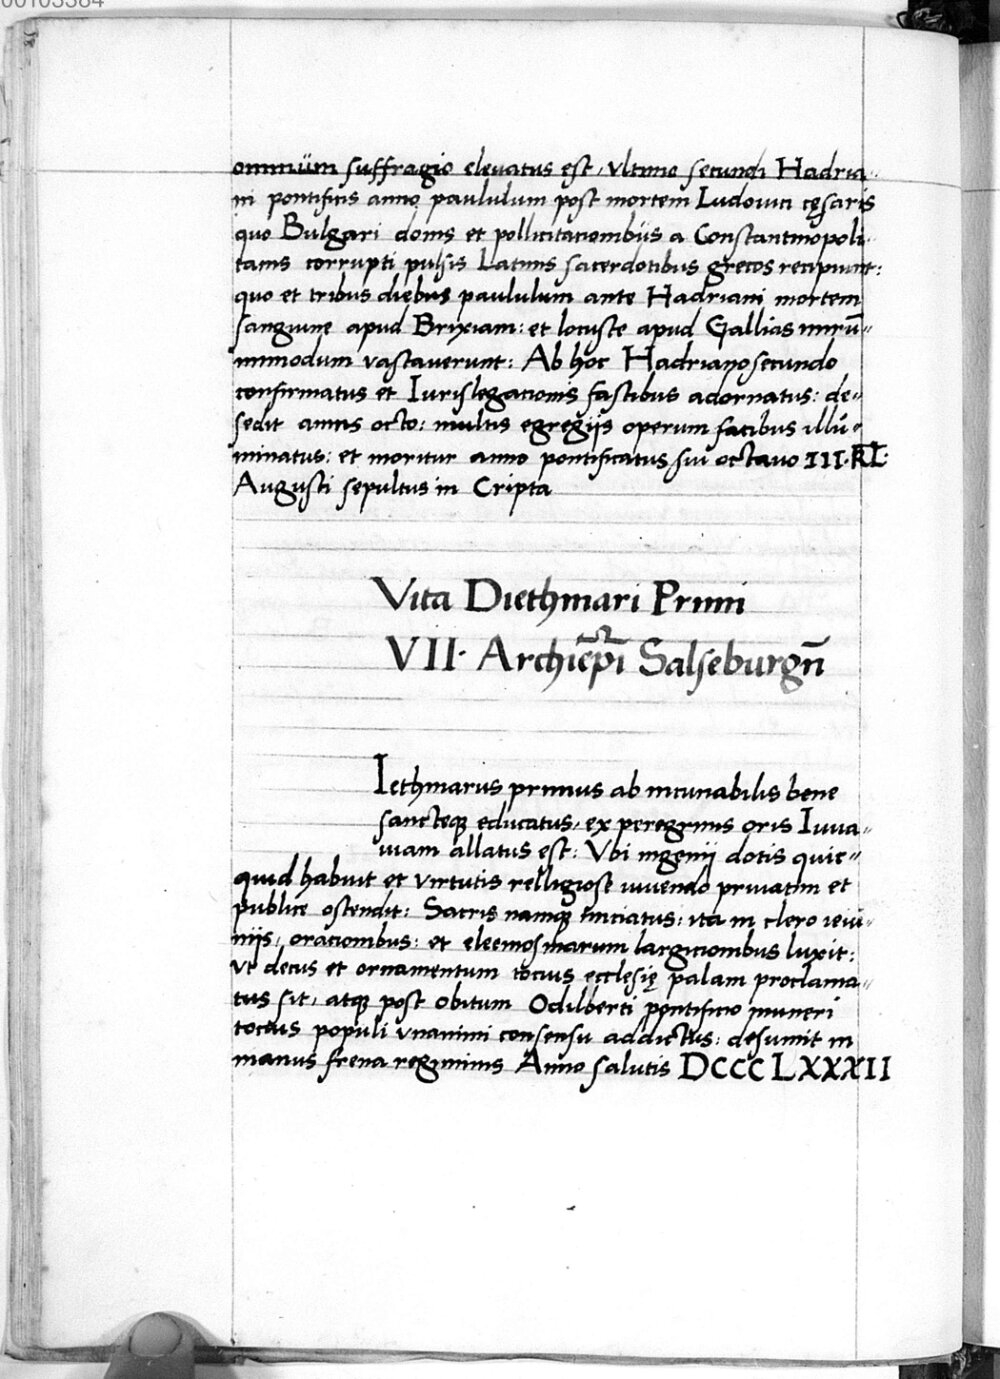 00103384
omniūm suffragio eleuatus est, vltimo secundi Hadria-
ni pontificis anno, paululum post mortem Ludouici cęsaris
quo Bulgari donis et pollicitacionibus a Constantinopoli-
tanis corrupti pulsis Latinis sacerdotibus grecos recipiunt:
quo et tribus diebus paululum ante Hadriani mortem
sanguine apud Brixiam: et locuste apud Gallias mirū-
inmodum vastauerunt: Ab hoc Hadriano secundo
confirmatus et Iurislegacionis fastibus adornatus: de-
sedit annis octo: multis egregijs operum facibus illū-
minatus: et moritur anno pontificatus sui octauo III. KL.
Augusti sepultus in Cripta
Vita Diethmari Primi
VII. Archiepī Salseburgn̄
Iethmarus primus ab incunabilis bene
sancteq educatus, ex peregrinis oris Iuua-
uiam allatus est: Vbi ingenij dotis quic-
quid habuit et virtutis relligiose viuendo priuatim et
publice ostendit: Sacris namq iniciatus: ita in clero ieiu-
niis, oracionibus: et eleemosinarum largicionibus luxit:
vt decus et ornamentum tocius ecclesię palam proclama-
tus sit, atq post obitum Odilberti pontificio muneri
tocius populi vnanimi consensu addictus: desumit in
manus frena regiminis Anno salutis DCCCLXXXII